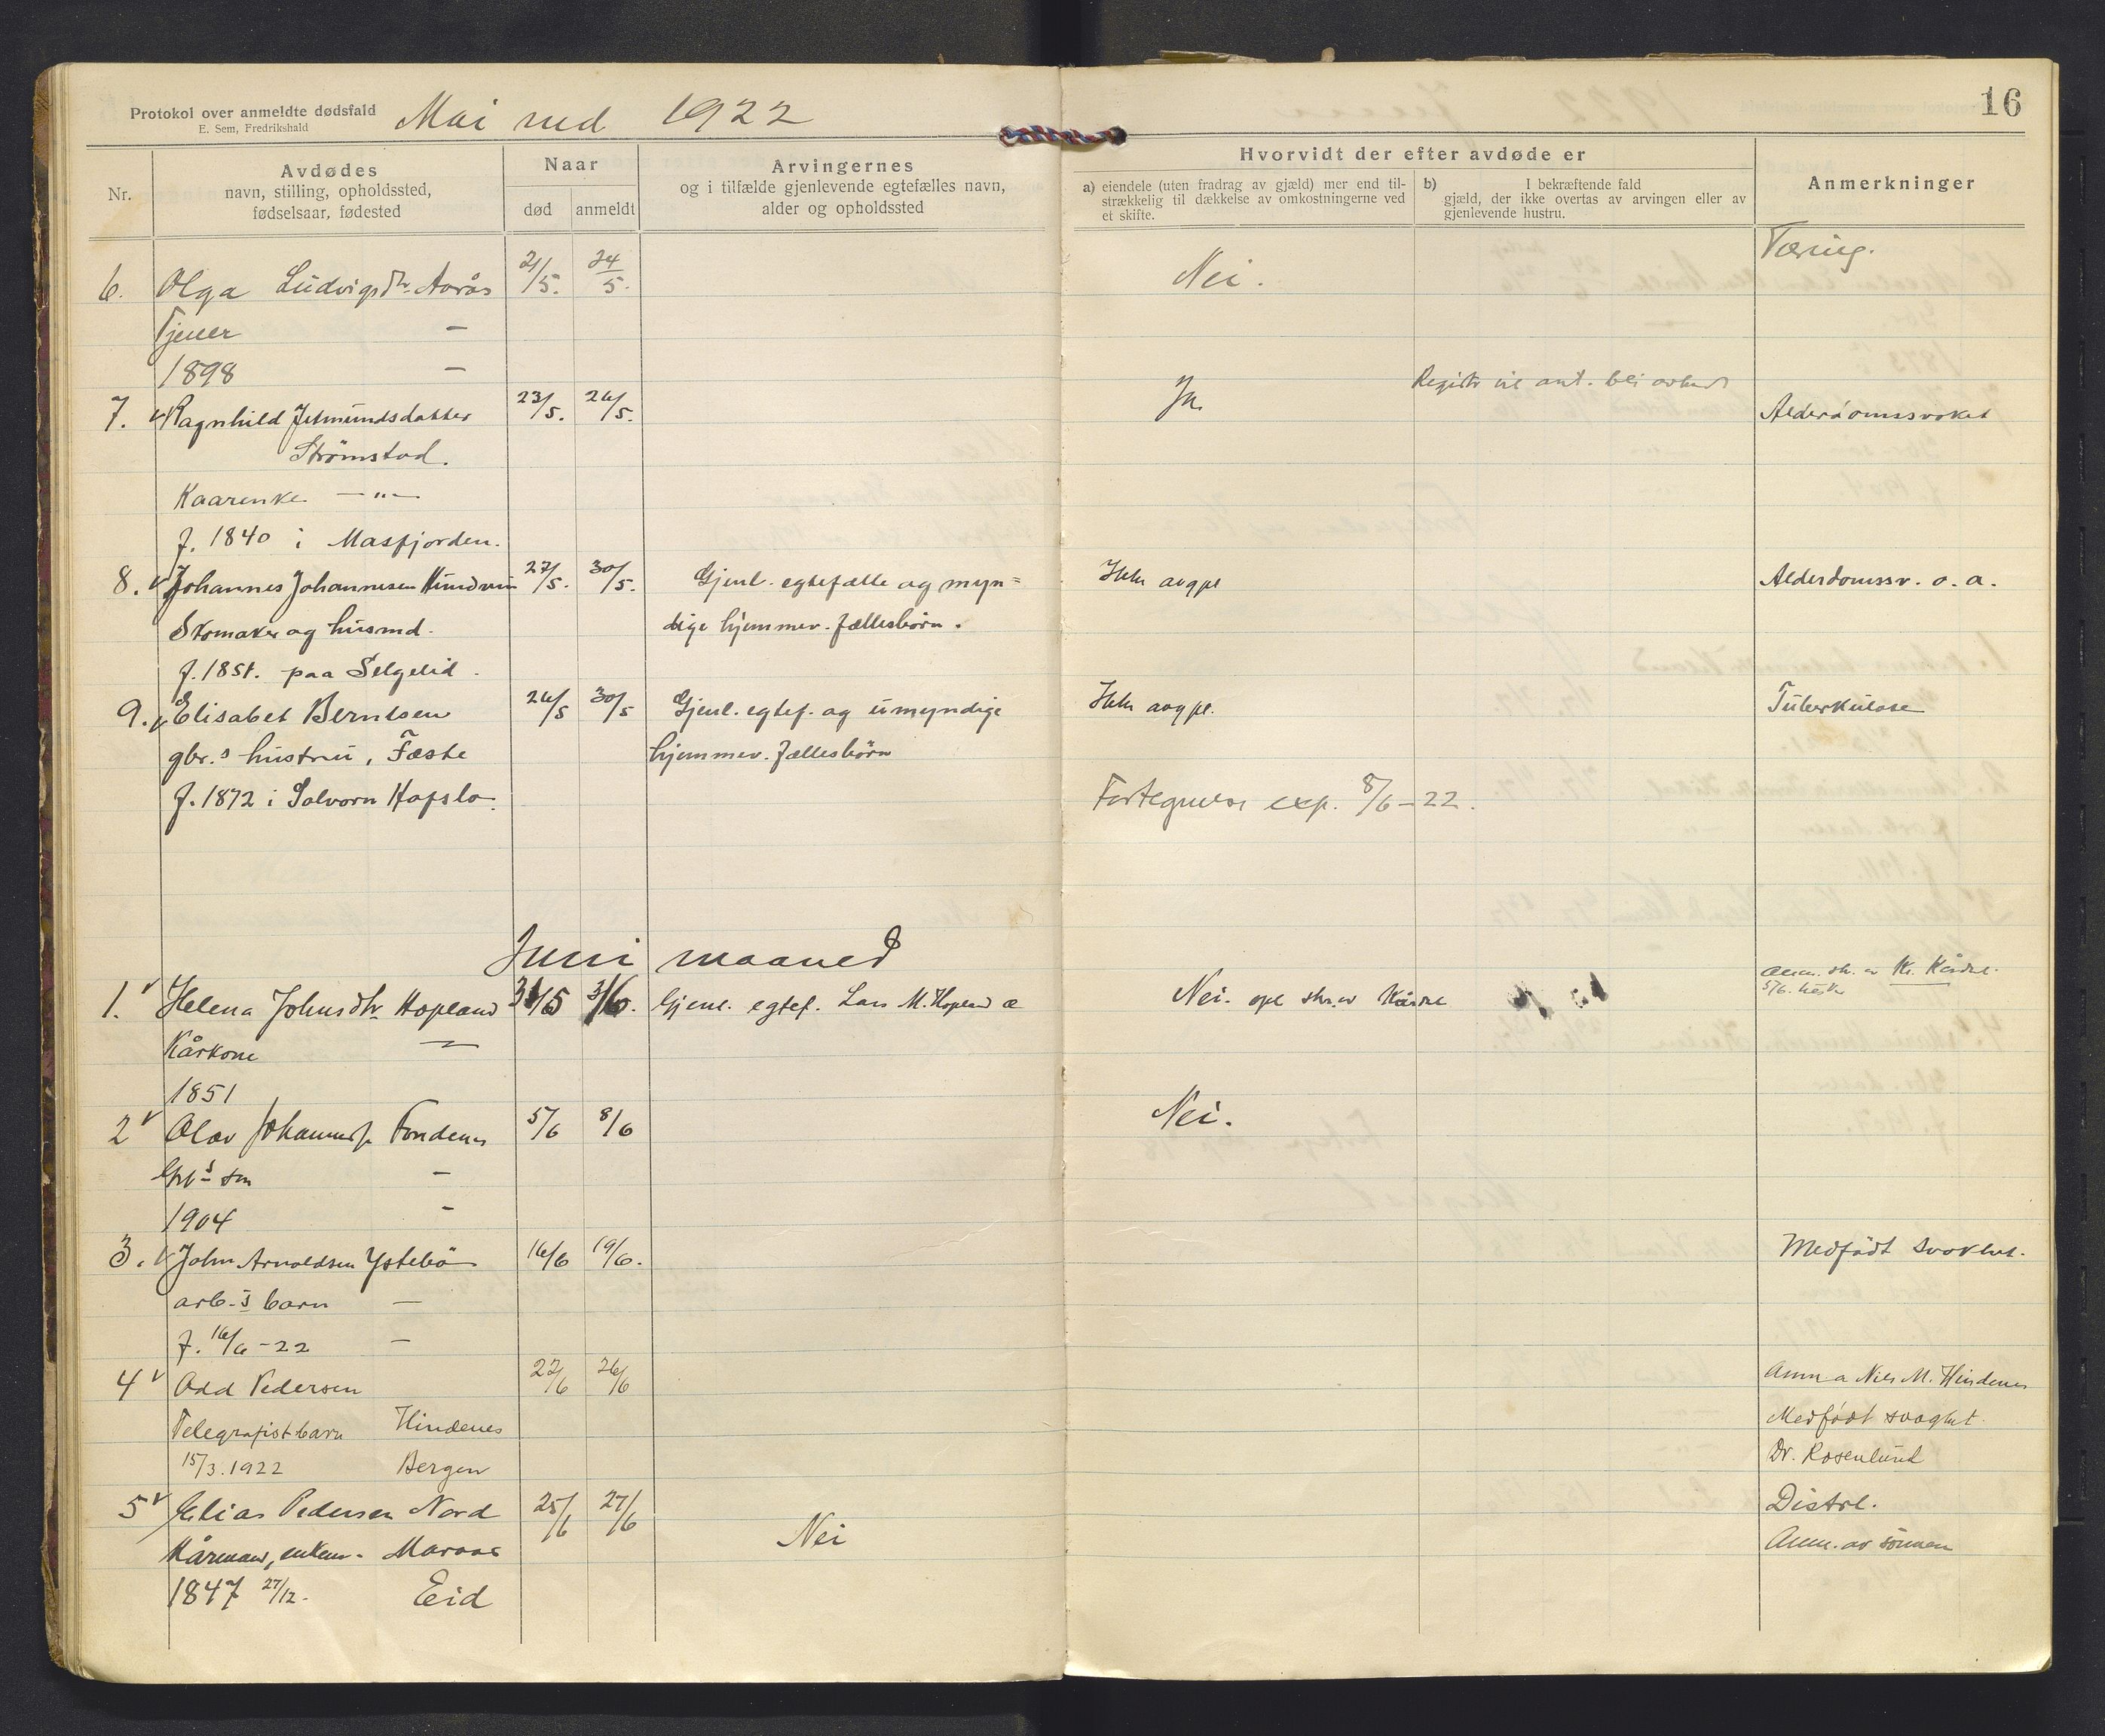 Protokol over anmeldte dødsfald
E. Sem, Fredrikshald
Mai md 1922
16
Nr.
Avdødes
navn, stilling, opholdssted,
fødselsaar, fødested
Naar
død
anmeldt
Arvingernes
og i tilfælde gjenlevende egtefælles navn,
alder og opholdssted
Hvorvidt der efter avdøde er
a) eiendele (uten fradrag av gjæld) mer end til-
strækkelig til dækkelse av omkostningerne ved
et skifte.
b) I bekræftende fald
gjæld, der ikke overtas av arvingen eller av
gjenlevende hustru.
Anmerkninger
6. Olga Ludvigsdtr. Aarås 21/5. 24/5. Nei. Tæring.
Tjener —
1898 —
7. Ragnhild Jetmundsdatter 23/5. 26/5. Ja. Registr vil ant. bli Alderdomssvaket
Strømstad.
Kaarenke —"—
f. 1840 i Masfjorden.
8. Johannes Johannesen 27/5. 30/5. Gjenl. egtefælle og myn= Ikke avgyl Alderdomssv. o. a.
Skomaker og husmd. dige hjemmev. fællesbörn.
f. 1851. paa Selgelid.
9. Elisabet Berntsen 26/5 30/5 Gjenl. egtef. og umyndige Ikke avgyl. Tuberkulose
gbr.s hustru, Fæste hjemmev. fællesbörn
f. 1872 i Solvorn Hafslo.
Fortegnelse exp. 8/6-22.
Juni maaned
1. Helena Johnsdtr Hopland 31/5 3/6. Gjenl. egtef. Lars M. Hopland Nei.
Kårkone —"—
1851
2 Olav Johannessen Fondenes 5/6 8/6 Nei.
Gbr s søn —
1904 -
3. John Arnoldsen Ystebö 16/6 19/6. Medfödt svakhet.
arb-s barn —
f. 16/6-22 —
4 Odd Pedersen 22/6 26/6 Anm a Nils M. Hindenes
Telegrafist barn Hindenes Medfödt svaghet.
15/3. 1922 Bergen Dr. Rosenlund
5 Elias Pedersen Nord 25/6 27/6 Nei Distrl.
Kårmand, enkem. Maraas Anm. av sönnen
1847 27/12. Eid